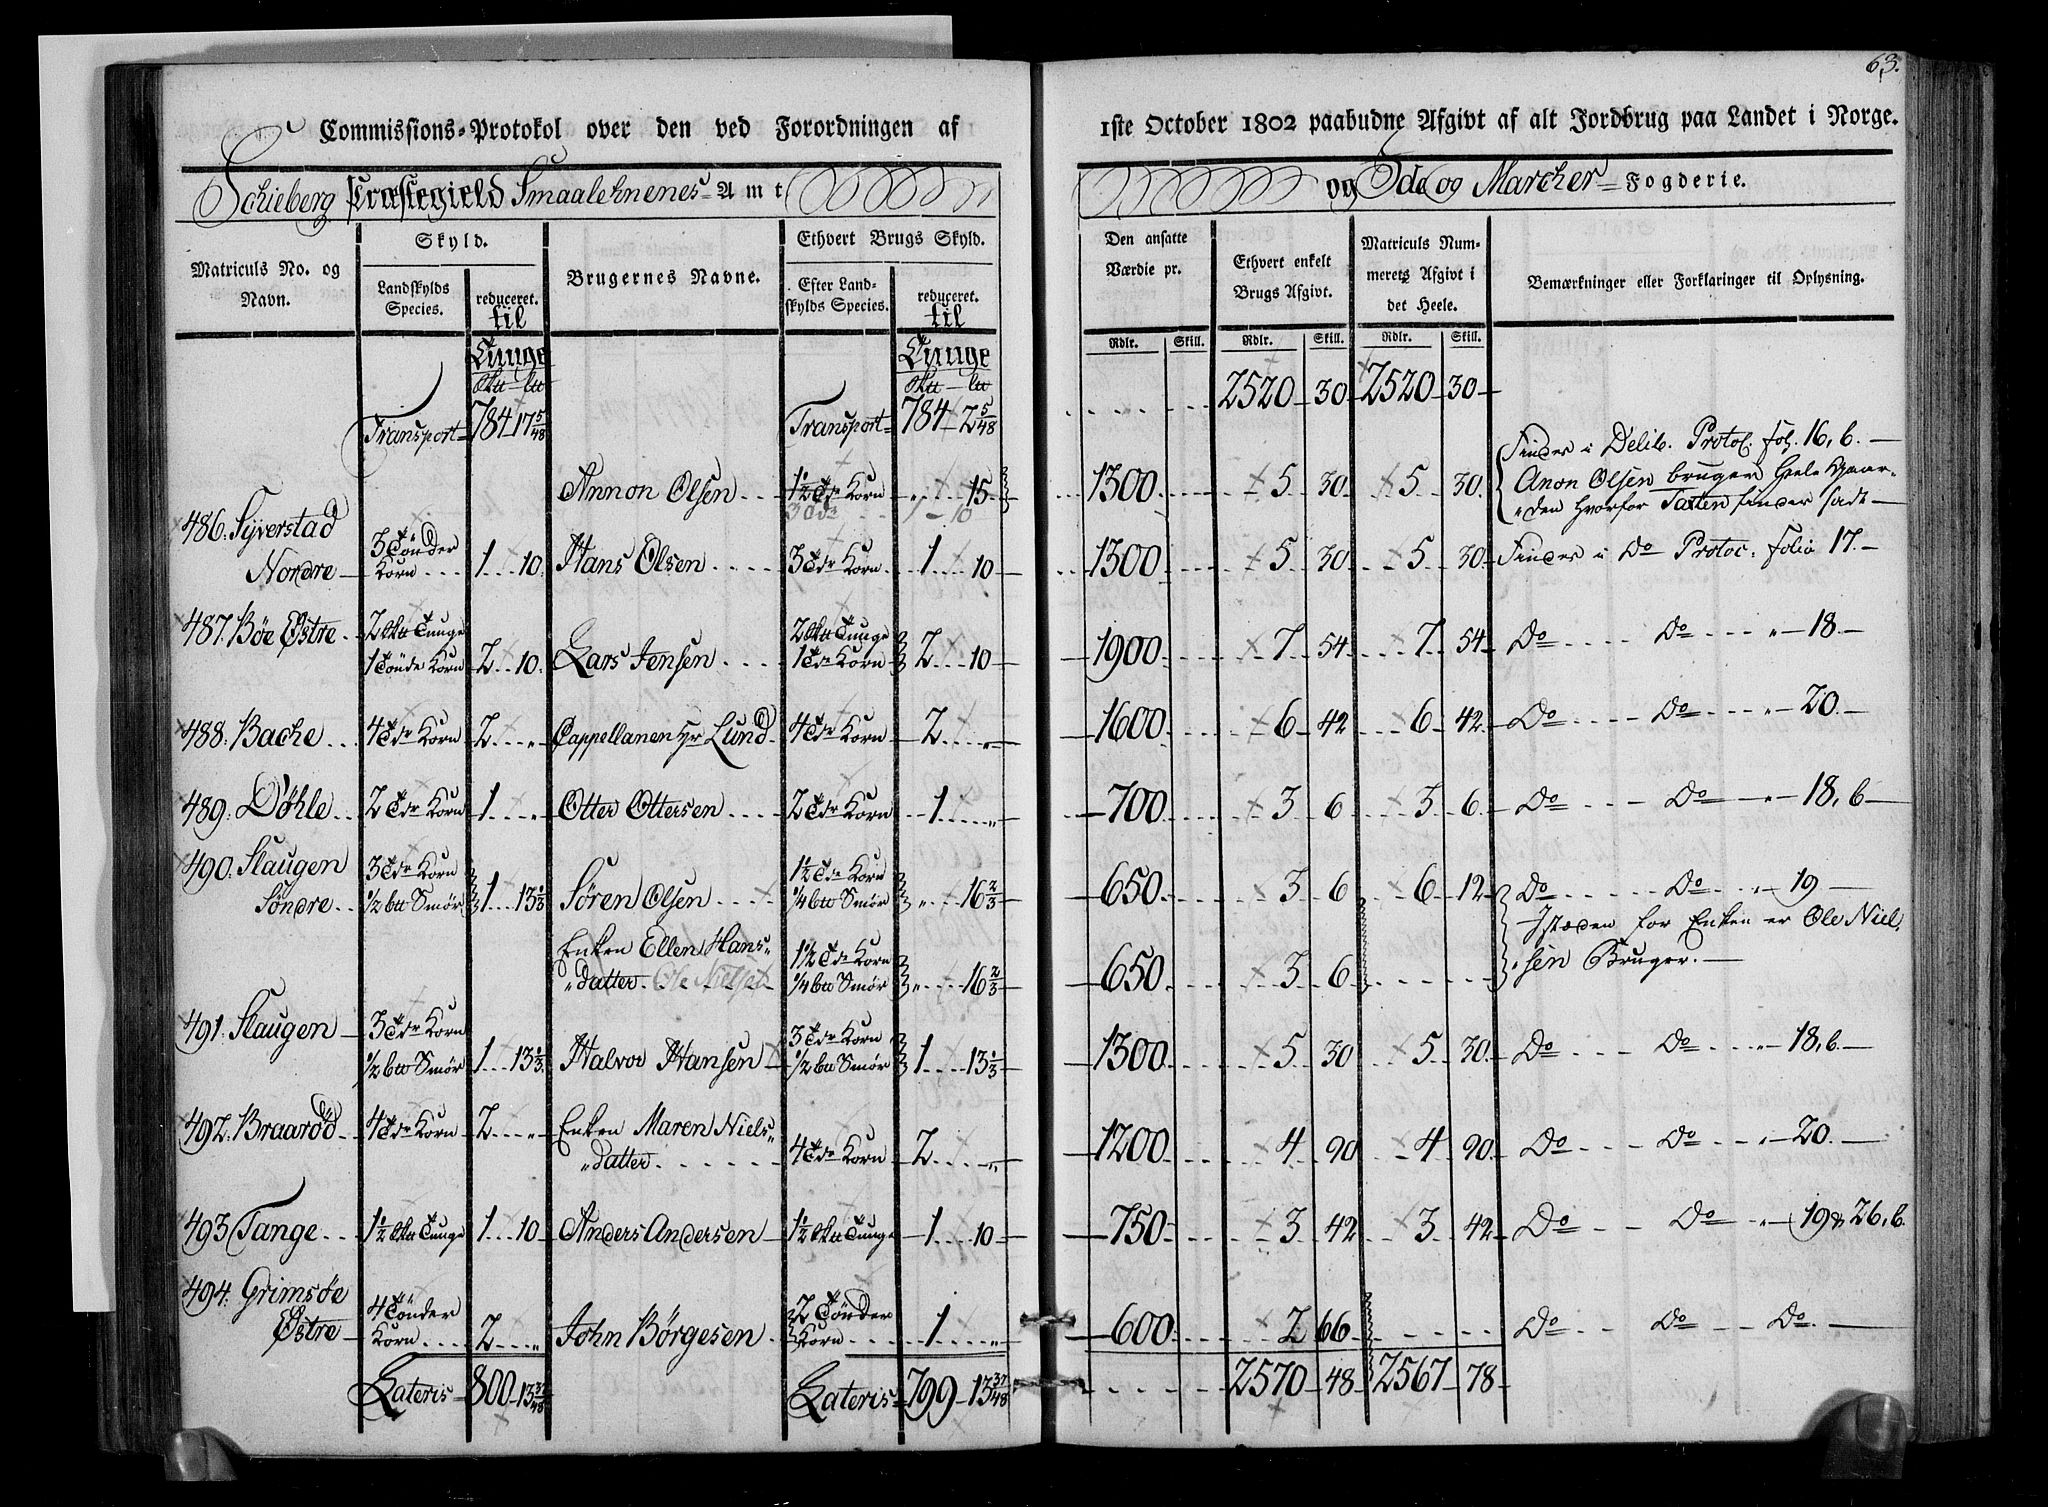 63.
Commissions-Protokol over den ved Forordningen af
1ste October 1802 paabudne Afgivt af alt Jordbrug paa Landet i Norge.
Schieberg Præstegield Smaalehnenes Amt
og Ide og Marcher Fogderie.
Matriculs No. og Navn.
Skyld.
Landskylds Species.
reduceret. til
Brugernes Navne.
Ethvert Brugs Skyld.
Efter Landskylds Species.
reduceret. til
Den ansatte Værdie pr.
Ethvert enkelt Brugs Afgivt.
Matriculs Nummerets Afgivt i det Heele.
Bemærkninger eller Forklaringer til Oplysning.
Rdlr. Skill. Rdlr. Skill. Rdlr. Skill.
Tunge Tunge
Transport 784 17 5/48 Transport 784 2 5/48 2520 30 2520 30
Annon Olsen 1½ Tdr Korn „ 15 1300 5 30 5 30 Findes i Delib. Protol. fol. 16, b.
3 Tdr 1 – 10
Anon Olsen bruger Heele Gaar-
den hvorfor Taxten findes sadt
486. Syverstad
Nordre 3 Tönder Korn 1 10 Hans Olsen 3 Tdr Korn 1 10 1300 5 30 5 30 Findes i Do Protoc. folio 17.
487. Böe Østre 2 Tunge
1 Tönde Korn 2 10 Lars Jensen 2 Tunge 1 Tdr Korn 2 10 1900 7 54 7 54 Do Do „ 18.
488. Bache 4 Tdr Korn 2 „ Cappellanen Hr Lund 4 Tdr Korn 2 „ 1600 6 42 6 42 Do Do „ 20.
489. Döhle 2 Tdr Korn 1 „ Otter Ottersen 2 Tdr Korn 1 „ 700 3 6 3 6 Do Do „ 18, b
490. Slaugen
Söndre 3 Tdr Korn ½ btt Smör 1 13⅓ Sören Olsen 1½ Tdr Korn ¼ btt Smör „ 16⅔ 650 3 6 6 12 Do Do „ 19
Istæden for Enken er Ole Niel-
sen Bruger.
Enken Ellen Hans-
datter. 1½ Tdr Korn ¼ btt Smör „ 16⅔ 650 3 6
491. Slaugen 3 Tdr Korn
½ btt Smör 1 13⅓ Halvor Hansen 3 Tdr Korn ½ btt Smör 1 13⅓ 1300 5 30 5 30 Do Do „ 18, b.
492. Braaröd 4 Tdr Korn 2 „ Enken Maren Niels-
datter 4 Tdr Korn 2 „ 1200 4 90 4 90 Do Do „ 20.
493 Tange 1½ Tunge 1 10 Anders Andersen 1½ Tunge 1 10 750 3 42 3 42 Do Do „ 19 & 26, b.
494. Grimsöe
Østre 4 Tönder Korn 2 „ John Börgesen 2 Tönder Korn 1 „ 600 2 66 Do Do Do.
Lateris 800 13 37/48 Lateris 799 13 37/48 2570 48 2567 78